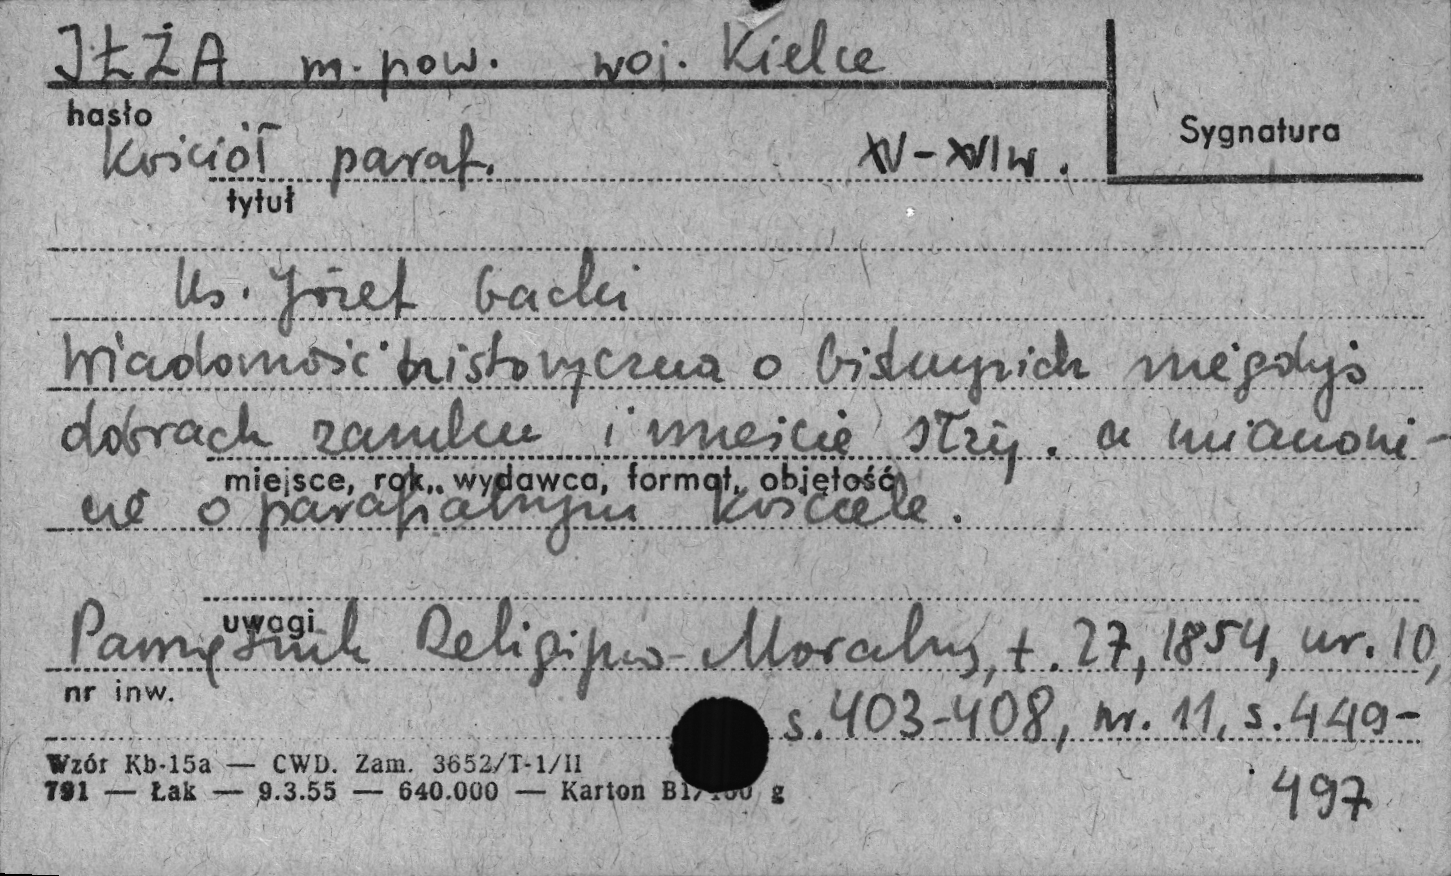 IŁŻA m. pow. woj. Kielce
hasło
Sygnatura
Kościół paraf. XV-XVI w.
tytuł
Ks. Józef Gacki
Wiadomość historyczna o biskupich niegdyś
dobrach zamku i mieście Iłży. a mianowi-
miejsce, rok, wydawca, format, objętość
cie o parafialnym kościele.
uwagi
Pamiętnik Religijno-Moralny, t. 27, 1854, nr. 10,
nr inw.
s. 403-408, nr. 11, s. 449-
Wzór Kb-15a — CWD. Zam. 3652/T-1/II
791 — Łak — 9.3.55 — 640.000 — Karton B1/160 g
497